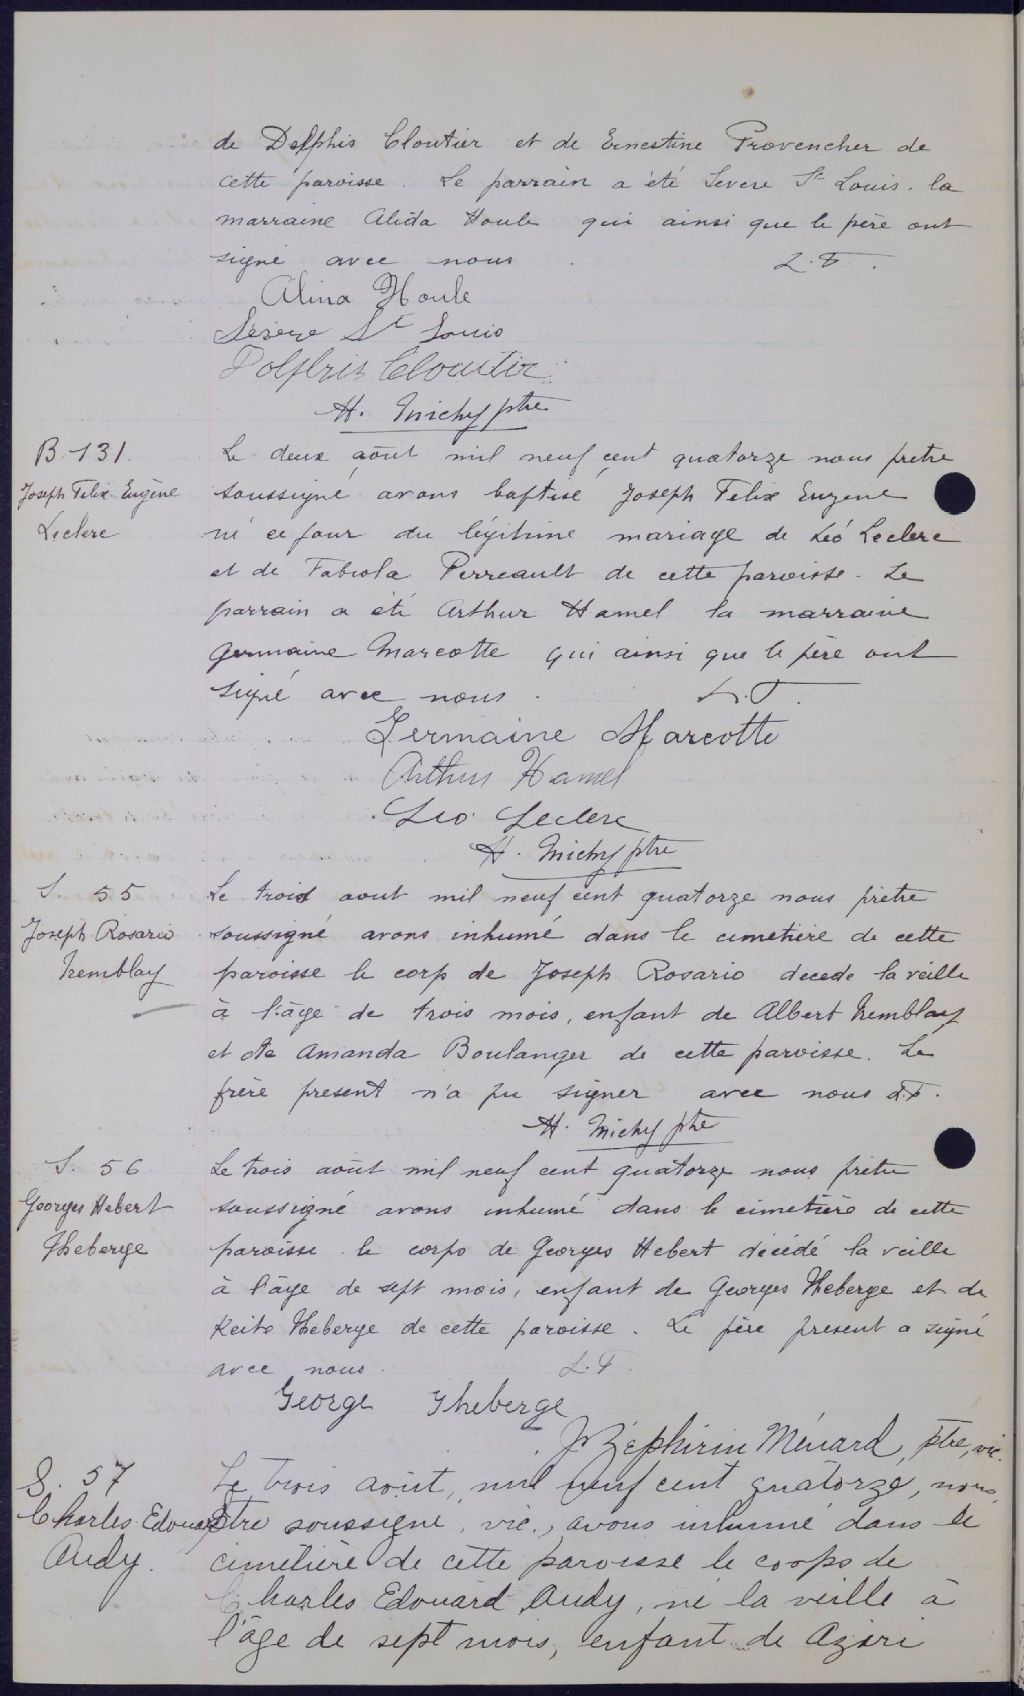 de Delphis Cloutier et de Ernestine Provencher de
cette paroisse. Le parrain a été Severe St Louis. la
marraine Alida Houle qui ainsi que le père ont
signé avec nous. L.F.
Alina Houle
Sévère St Louis
Dolphis Cloutier
H. Michy ptre
B. 131.
Joseph Felix Eugène
Leclerc
Le deux août mil neuf cent quatorze nous pretre
soussigné avons baptisé Joseph Felix Eugene
né ce jour du légitime mariage de Léo Leclerc
et de Fabiola Perreault de cette paroisse. Le
parrain a été Arthur Hamel la marraine
Germaine Marcotte qui ainsi que le père ont
signé avec nous. L.F.
Germaine Marcotte
Arthur Hamel
Leo Leclerc
H. Michy ptre
S. 55
Joseph Rosario
Tremblay
Le trois aout mil neuf cent quatorze nous prêtre
soussigné avons inhumé dans le cimetière de cette
paroisse le corp de Joseph Rosario decede la veille
à l'âge de trois mois, enfant de Albert Tremblay
et de Amanda Boulanger de cette paroisse. Le
frère present n'a pu signer avec nous L.F.
H. Michy ptre
S. 56
Georges Hebert
Theberge
Le trois août mil neuf cent quatorze nous prêtre
soussigné avons inhumé dans le cimetière de cette
paroisse le corps de Georges Hebert décédé la veille
à l'âge de sept mois, enfant de Georges Theberge et de
Theberge de cette paroisse. Le père present a signé
avec nous. L.F.
George Theberge
J. Zéphirin Ménard, ptre, vic.
S. 57
Charles Edouard
Audy.
Le trois août, mil neuf cent quatorze, nous,
ptre soussigné, vic., avons inhumé dans le
cimetière de cette paroisse le corps de
Charles Edouard Audy, né la veille à
l'âge de sept mois, enfant de Azari